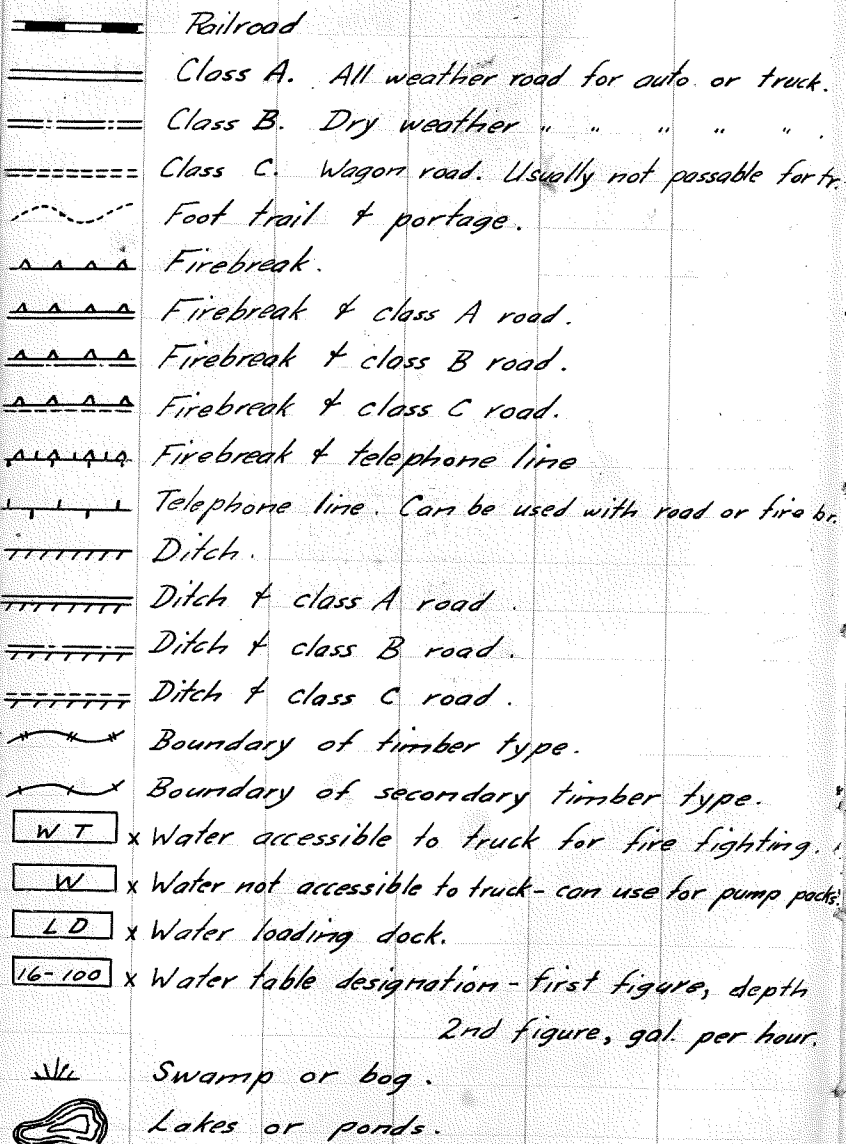 Railroad
Class A. All weather road for auto or truck.
Class B. Dry weather " " " " " .
Class C. Wagon road. Usually not passable for tr.
Foot trail & portage.
Firebreak.
Firebreak & class A road.
Firebreak & class B road.
Firebreak & class C road.
Firebreak & telephone line
Telephone line. Can be used with road or fire br.
Ditch.
Ditch & class A road.
Ditch & class B road.
Ditch & class C road.
Boundary of timber type.
Boundary of secondary timber type.
WT x Water accessible to truck for fire fighting.
W x Water not accessible to truck - can use for pump packs.
LD x Water loading dock.
16-100 x Water table designation - first figure, depth
2nd figure, gal. per hour.
Swamp or bog.
Lakes or ponds.